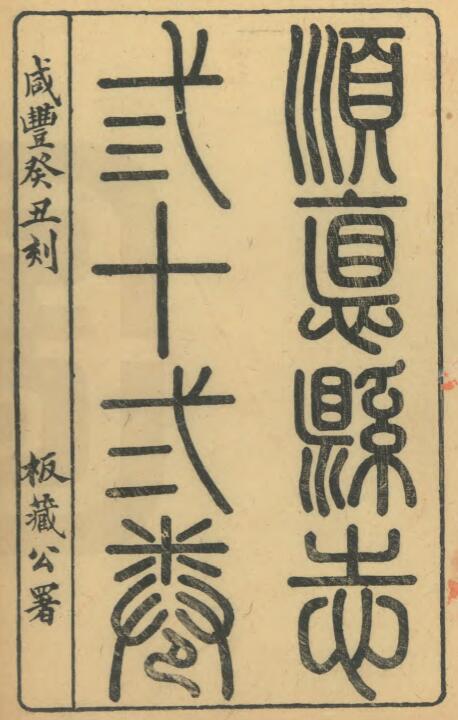 順悳縣志
弎十弍卷
咸豐癸丑刻 板藏公署